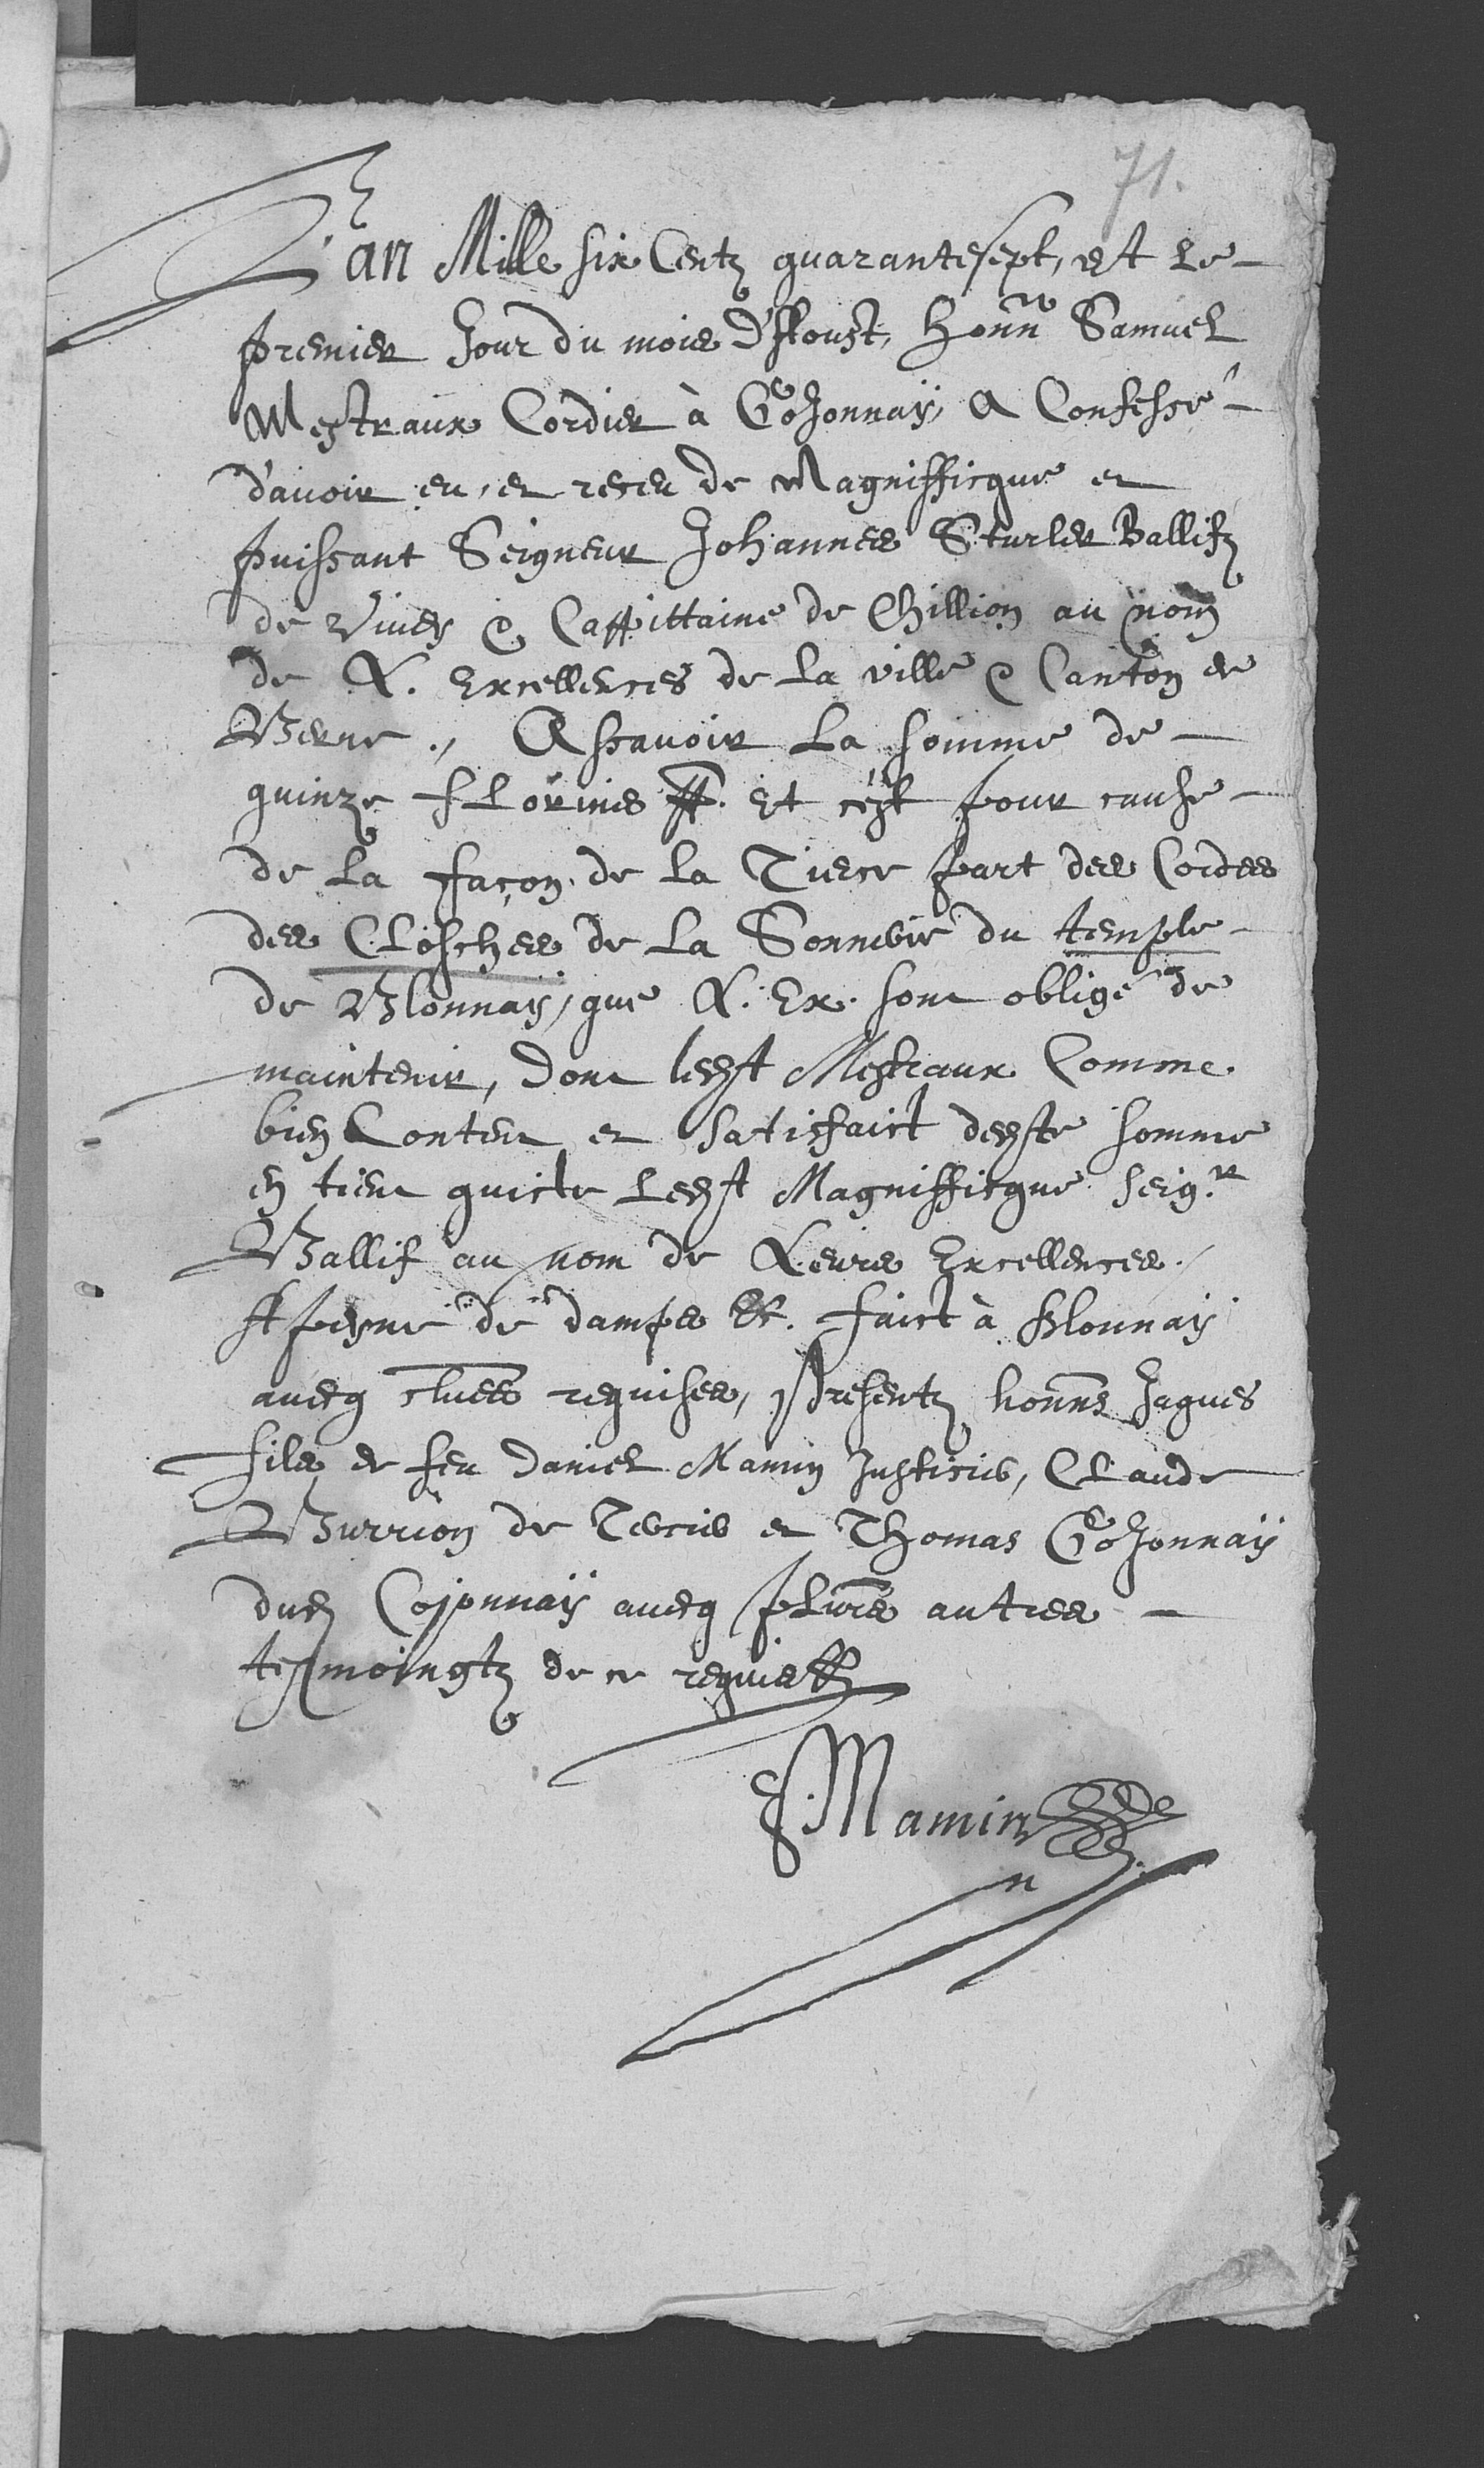 71.
L'an Mille six Centz quarantesept, et Le
premier Jour du mois D'Aoust, Honn^e Samuel
Mestraux Cordier à Cojonnaÿ, A Confessé
d'avoir eu, et receu de Magnifficque et
puissant Seigneur Johannes Sturler Ballifz
de Vivey & Cappittaine de Chillion au nom
de L. Excellences de La ville & Canton de
Berne., Assavoir La somme de
quinze fLorins pp. Et c'est pour cause
de La façon de La Tierce part des Cordes
des CLosches de La Sonnerie du temple
de Blonnaÿ, que L. Ex. sont obligé de
maintenir, Dont ledst Mestraux Comme
bien Content et Satisfaict dedste somme
en tient quicte Ledst Magnifficque Seig.r
Ballif au nom de Leurs Excellences.
A peyne de damps &c. faict à Blonnaÿ
avecq requises, Presentz honns Jaques
fils de feu Daniel Mamin Justicier, CLaude
Burrion de Tercier et Thomas Cojonnaÿ
dud Cojonnaÿ avecq pLurs autres
tesmoingtz de ce requis
Mamin